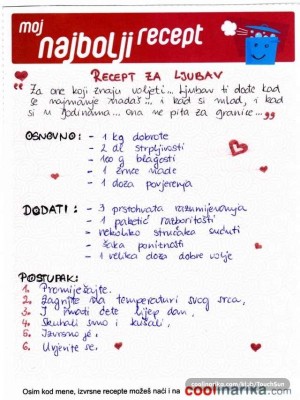 moj
najbolji recept
RECEPT ZA LJUBAV
" Za one koji znaju voljeti... Ljubav ti dođe kad
se najmanje nadaš... i kad si mlad, i kad
si u godinama... Ona ne pita za granice... "
OSNOVNO: - 1 kg dobrote
- 2 dl strpljivosti
- 100 g blagosti
- 1 zrnce nade
- 1 doza povjerenja
DODATI: - 3 prstohvata razumijevanja
- 1 paketić razboritosti
- nekoliko stručaka sućuti
- šaka poniznosti
- 1 velika doza dobre volje
POSTUPAK:
1. Promiješajte.
2. Zagrijte na temperaturi svog srca,
3. I imati ćete lijep dan,
4. Skuhali smo i kušali,
5. Izvrsno je.
6. Uvjerite se.
coolinarika.com/klub/TouchSun
Osim kod mene, izvrsne recepte možeš naći i na coolinarika.com